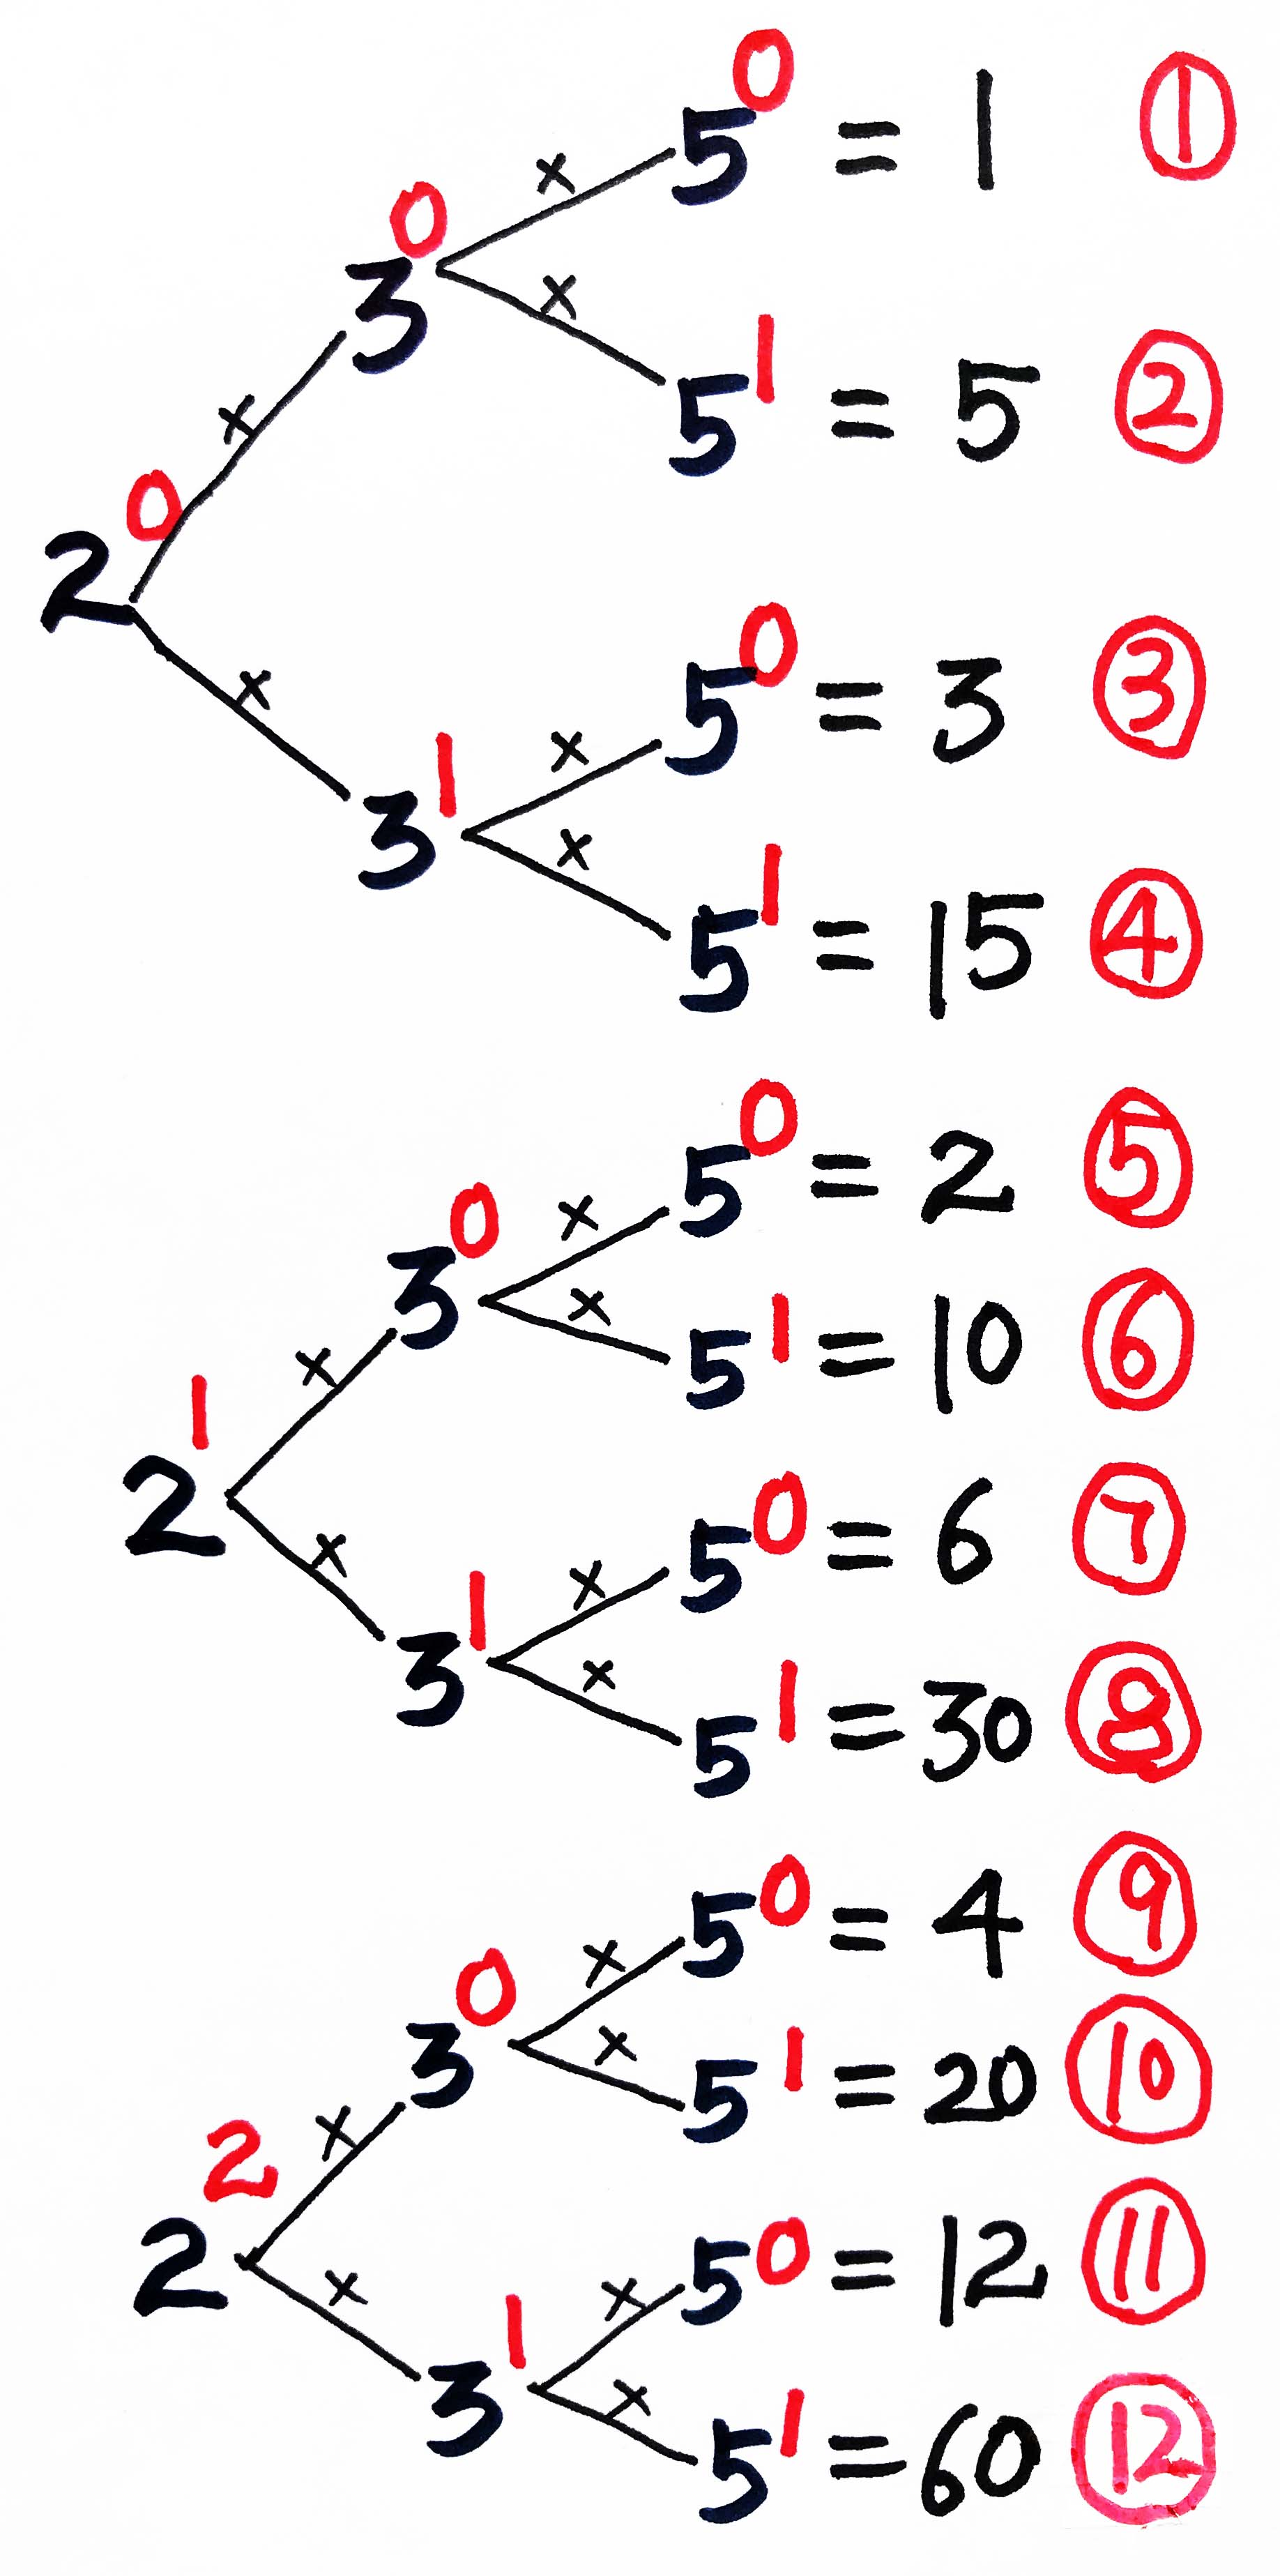 2⁰ × 3⁰ × 5⁰ = 1 ①
× 5¹ = 5 ②
× 3¹ × 5⁰ = 3 ③
× 5¹ = 15 ④
2¹ × 3⁰ × 5⁰ = 2 ⑤
× 5¹ = 10 ⑥
× 3¹ × 5⁰ = 6 ⑦
× 5¹ = 30 ⑧
2² × 3⁰ × 5⁰ = 4 ⑨
× 5¹ = 20 ⑩
× 3¹ × 5⁰ = 12 ⑪
× 5¹ = 60 ⑫